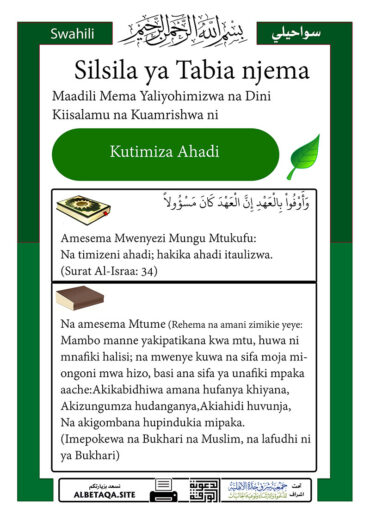 Swahili
بِسْمِ اللَّهِ الرَّحْمَنِ الرَّحِيمِ
سواحيلي
Silsila ya Tabia njema
Maadili Mema Yaliyohimizwa na Dini
Kiisalamu na Kuamrishwa ni
Kutimiza Ahadi
وَأَوْفُواْ بِالْعَهْدِ إِنَّ الْعَهْدَ كَانَ مَسْؤُولاً
Amesema Mwenyezi Mungu Mtukufu:
Na timizeni ahadi; hakika ahadi itaulizwa.
(Surat Al-Israa: 34)
Na amesema Mtume (Rehema na amani zimikie yeye:
Mambo manne yakipatikana kwa mtu, huwa ni
mnafiki halisi; na mwenye kuwa na sifa moja mi-
ongoni mwa hizo, basi ana sifa ya unafiki mpaka
aache:Akikabidhiwa amana hufanya khiyana,
Akizungumza hudanganya,Akiahidi huvunja,
Na akigombana hupindukia mipaka.
(Imepokewa na Bukhari na Muslim, na lafudhi ni
ya Bukhari)
نسعد بزيارتكم
ALBETAQA.SITE
الدعوية
الورقة
تحت
اشراف